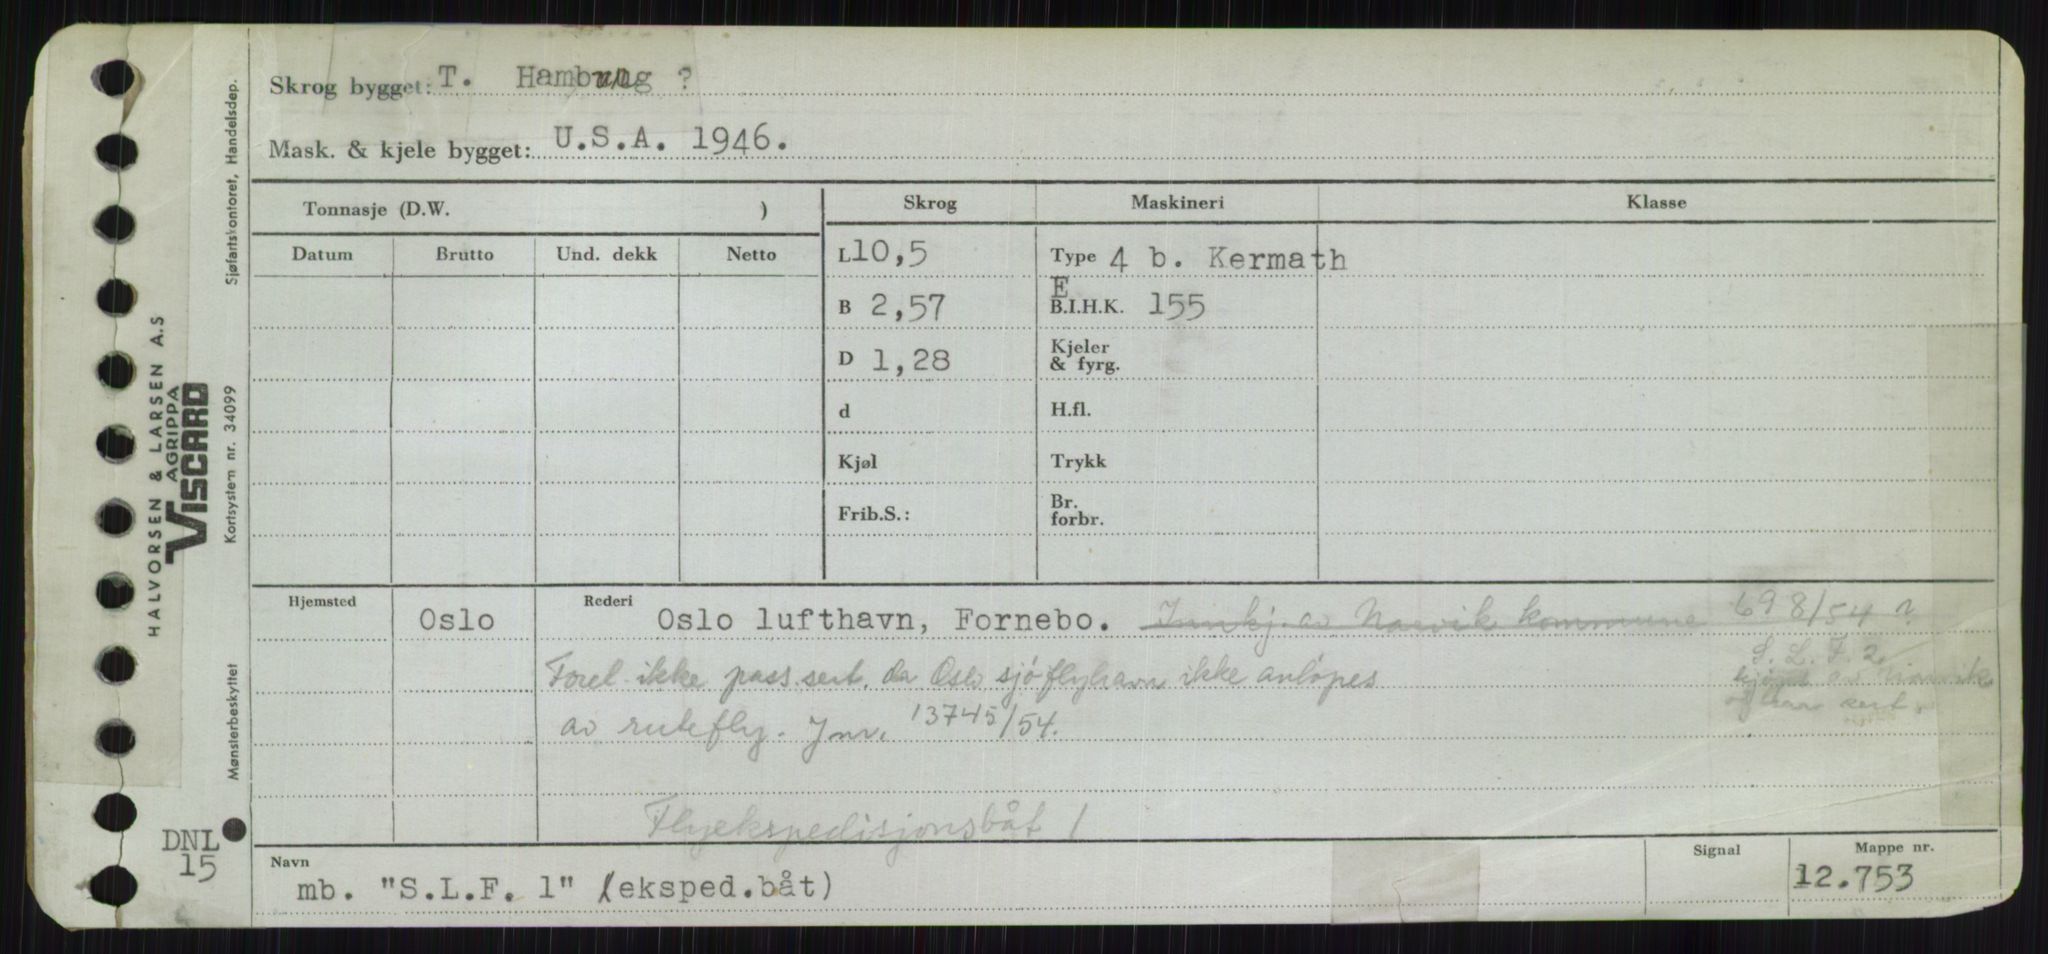 Skrog bygget: T. Hamburg ?
Mask. & kjele bygget: U.S.A. 1946.
Tonnasje (D.W. )
Skrog
Maskineri
Klasse
Datum
Brutto
Und. dekk
Netto
L 10,5
Type 4 b. Kermath
B 2,57
E
B.I.H.K. 155
D 1,28
Kjeler
& fyrg.
d
H.fl.
Kjøl
Trykk
Frib.S.:
Br.
forbr.
Hjemsted
Oslo
Rederi
Oslo lufthavn, Fornebo. Innkj. av Narvik kommune 698/54 ?
S. L. F. 2
kjøpt av Narvik
og har sert.
Forel. ikke pass.sert. da Oslo sjøflyhavn ikke anløpes
av rutefly. Jnr. 13745/54.
Flyekspedisjonsbåt 1
Navn
mb. "S.L.F. 1" (eksped.båt)
Signal
Mappe nr.
12.753
DNL
15
Sjøfartskontoret, Handelsdep.
HALVORSEN & LARSEN A.S
AGRIPPA
VISCARD
Kortsystem nr. 34099
Mønsterbeskyttet